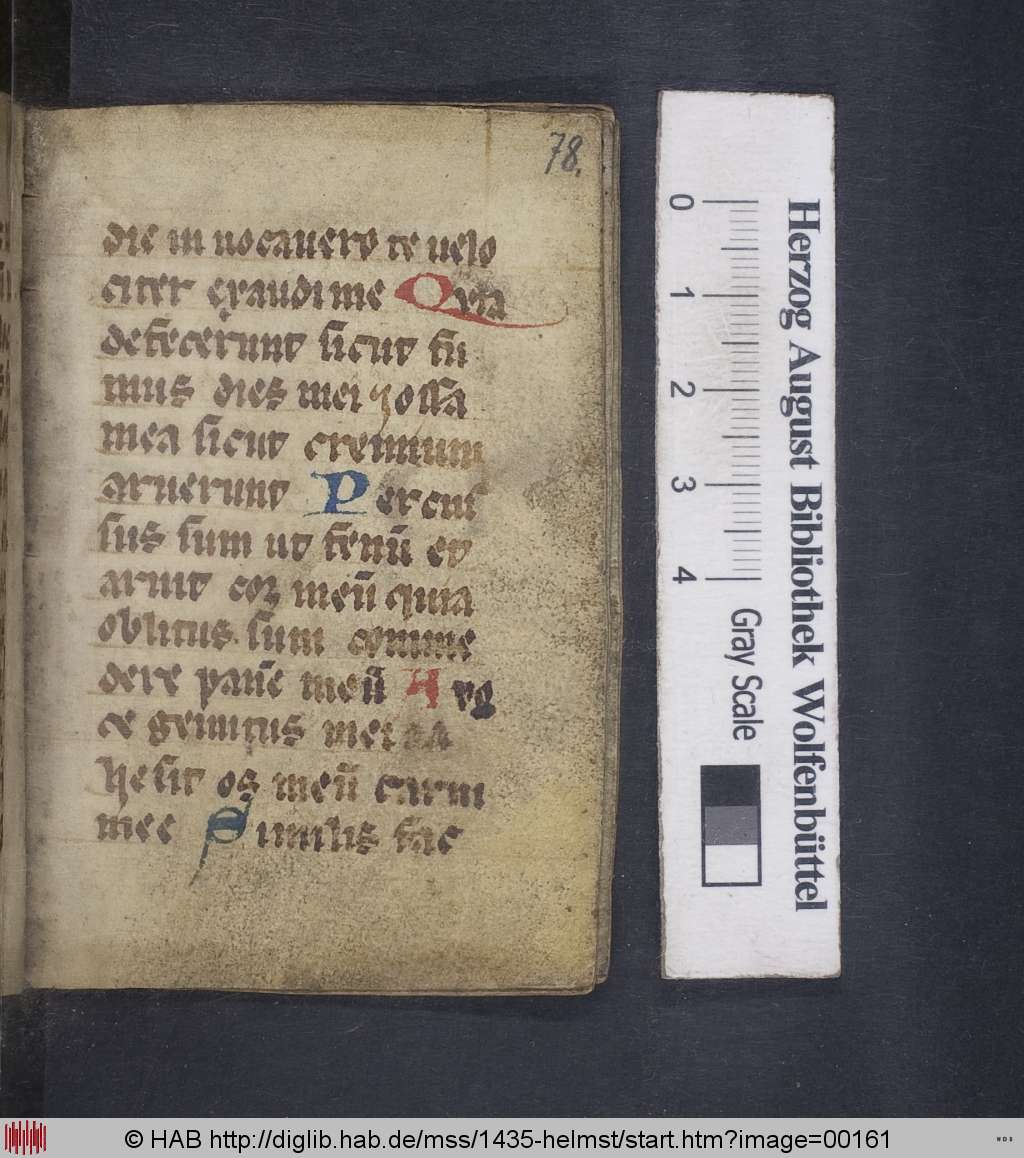 78.
die in uocauero te uelo
citer exaudi me Quia
defecerunt sicut fu
mus dies mei ⁊ ossa
mea sicut cremium
aruerunt Percus
sus sum ut fenū et
aruit cor meū quia
oblitus sum comme
dere panē meū A uo
ce gemitus mei aa
hesit os meū carni
mee Similis fac
0
1
2
3
4
Gray Scale
Herzog August Bibliothek Wolfenbüttel
© HAB http://diglib.hab.de/mss/1435-helmst/start.htm?image=00161